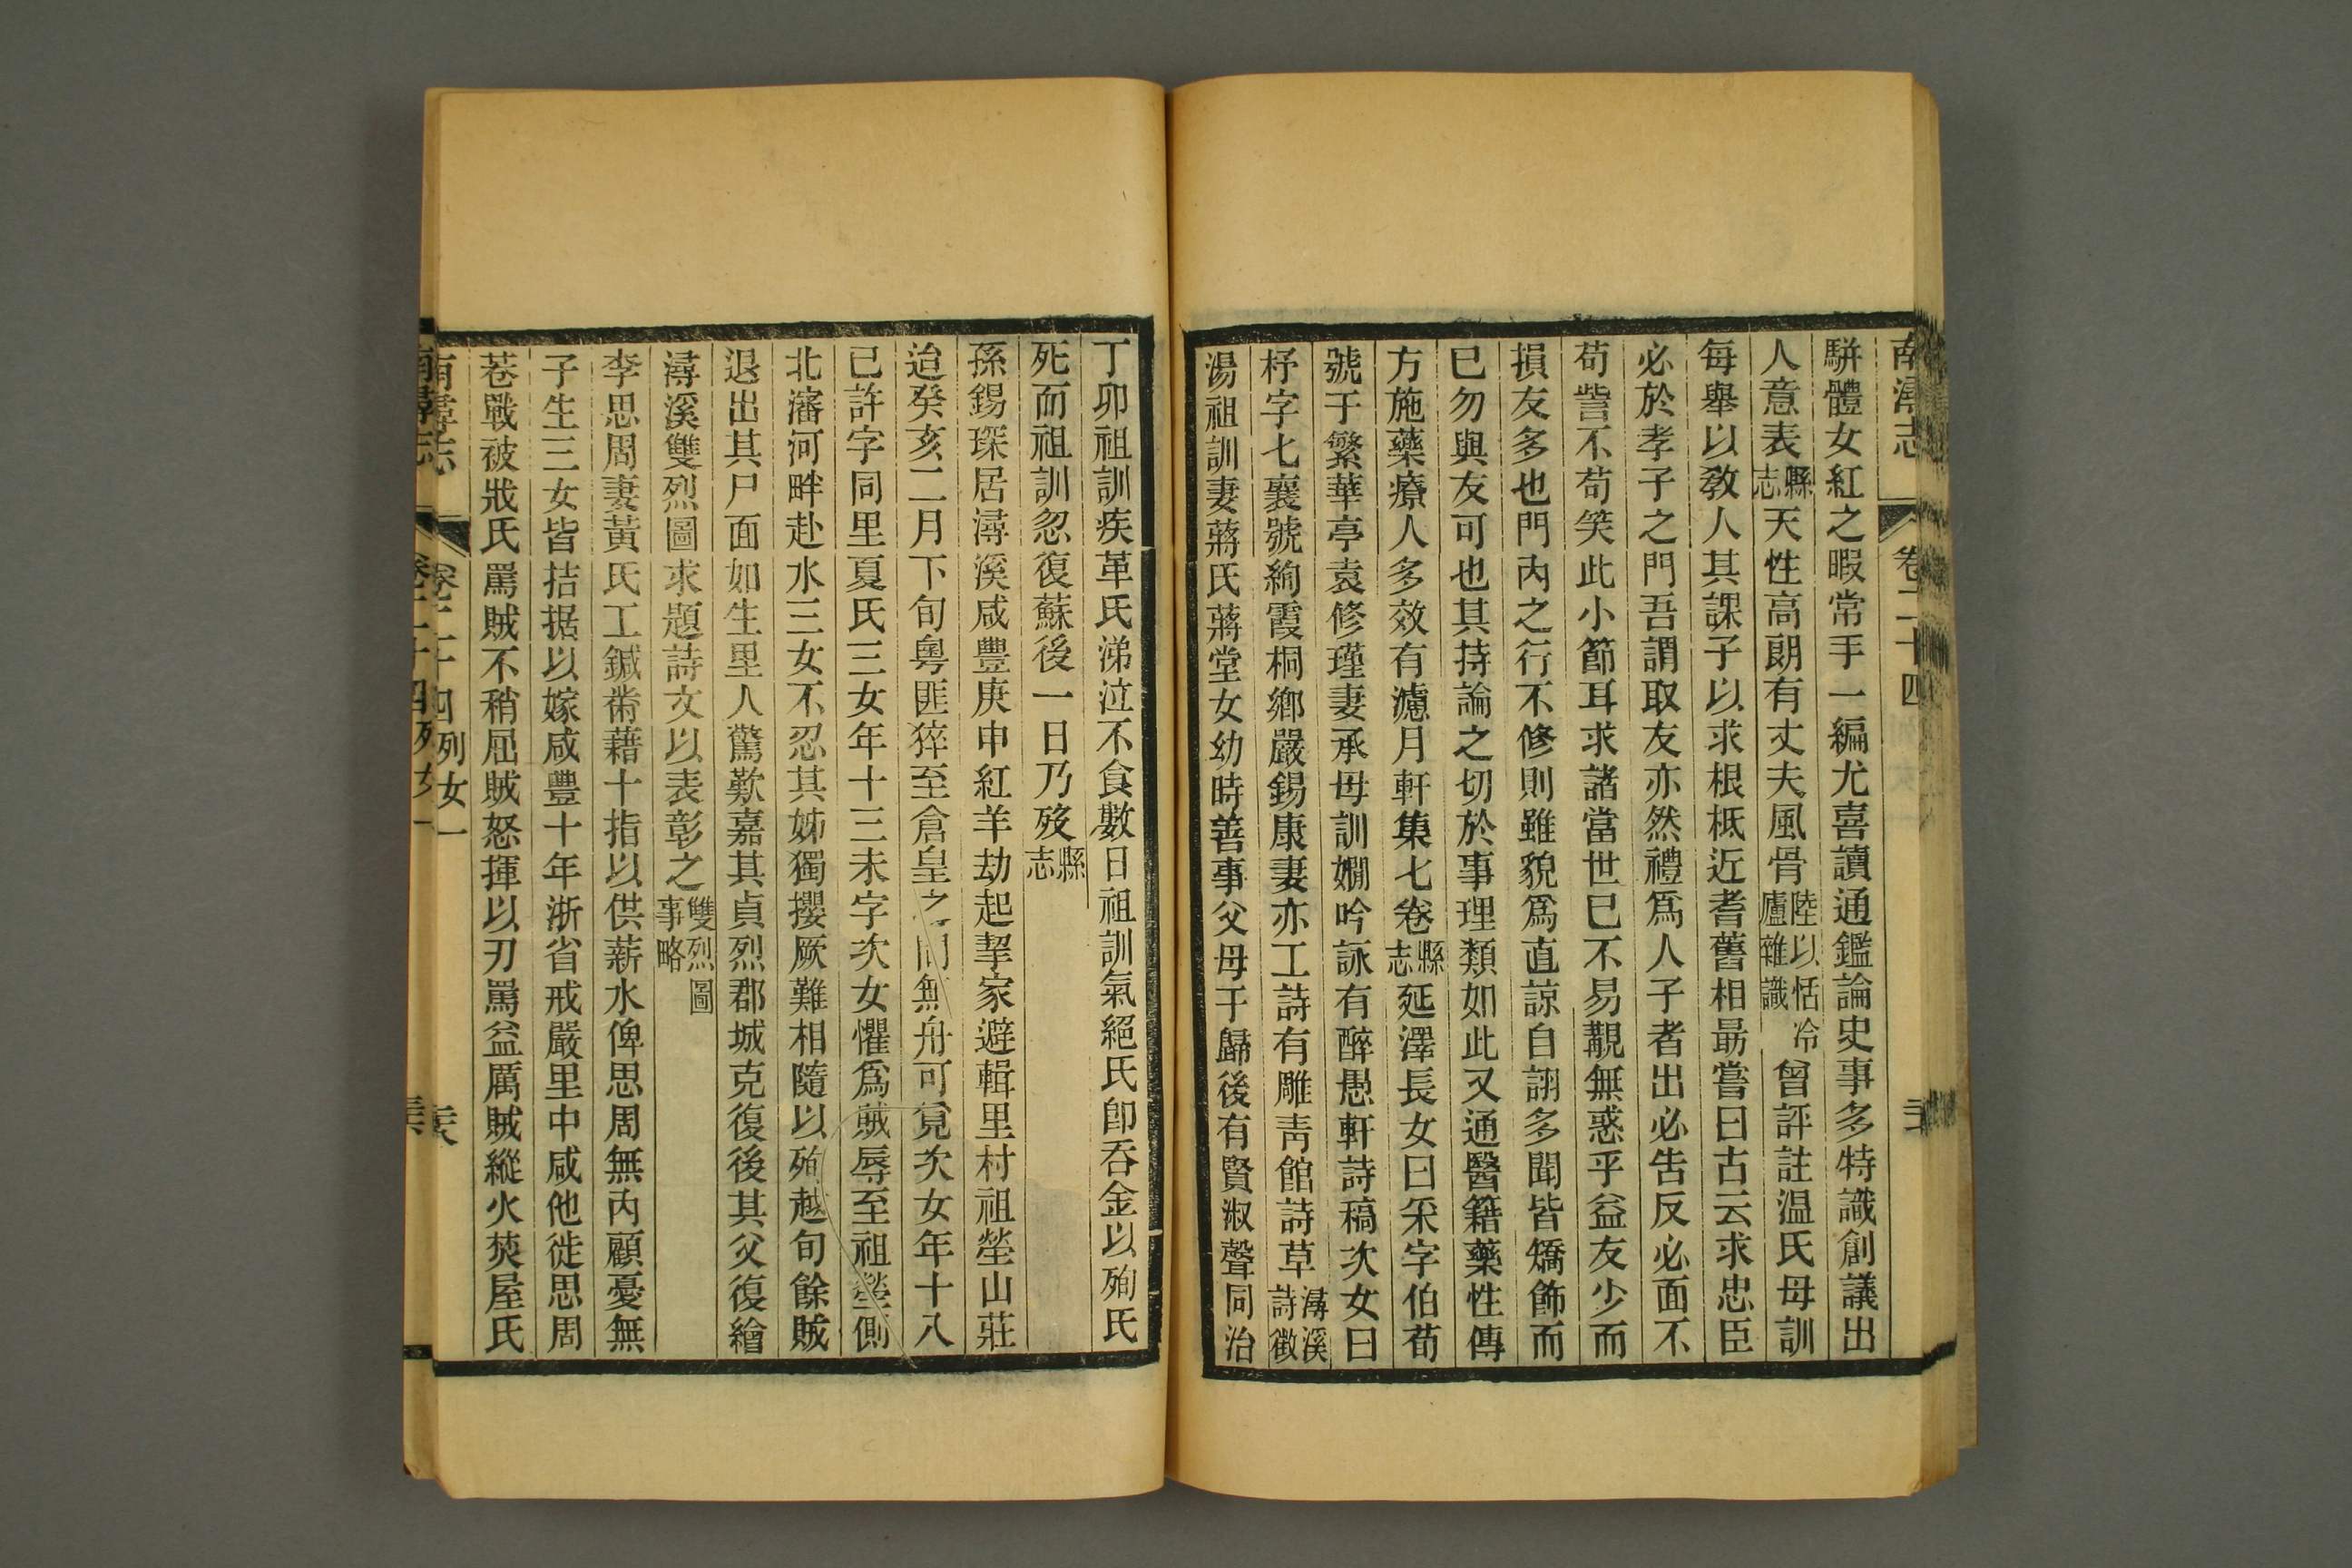 南潯志 卷二十四
駢體女紅之暇常手一編尤喜讀通鑑論史事多特識創議出
人意表縣志天性高朗有丈夫風骨陸以恬冷廬雜識曾評註温氏母訓
每舉以敎人其課子以求根柢近耆舊相朂嘗曰古云求忠臣
必於孝子之門吾謂取友亦然禮爲人子者出必告反必面不
苟訾不苟笑此小節耳求諸當世已不易覯無惑乎益友少而
損友多也門內之行不修則雖貌爲直諒自詡多聞皆矯飾而
已勿與友可也其持論之切於事理類如此又通醫籍藥性傳
方施藥療人多效有濾月軒集七卷縣志延澤長女曰采字伯荀
號于繁華亭袁修瑾妻承母訓嫺吟詠有醉愚軒詩稿次女曰
杼字七襄號絢霞桐鄉嚴錫康妻亦工詩有雕靑館詩草潯溪詩徵
湯祖訓妻蔣氏蔣堂女幼時善事父母于歸後有賢淑聲同治
丁卯祖訓疾革氏涕泣不食數日祖訓氣絕氏卽吞金以殉氏
死而祖訓忽復蘇後一日乃歿縣志
孫錫琛居潯溪咸豐庚申紅羊劫起挈家避輯里村祖塋山莊
迨癸亥二月下旬粵匪猝至倉皇之間無舟可覓次女年十八
已許字同里夏氏三女年十三未字次女懼爲賊辱至祖塋側
北瀋河畔赴水三女不忍其姊獨攖厥難相隨以殉越旬餘賊
退出其尸面如生里人驚歎嘉其貞烈郡城克復後其父復繪
潯溪雙烈圖求題詩文以表彰之雙烈圖事略
李思周妻黃氏工鍼黹藉十指以供薪水俾思周無內顧憂無
子生三女皆拮据以嫁咸豐十年浙省戒嚴里中咸他徙思周
巷戰被戕氏罵賊不稍屈賊怒揮以刃罵益厲賊縱火焚屋氏
南潯志 卷二十四 列女一
南潯志 卷二十四 列女一